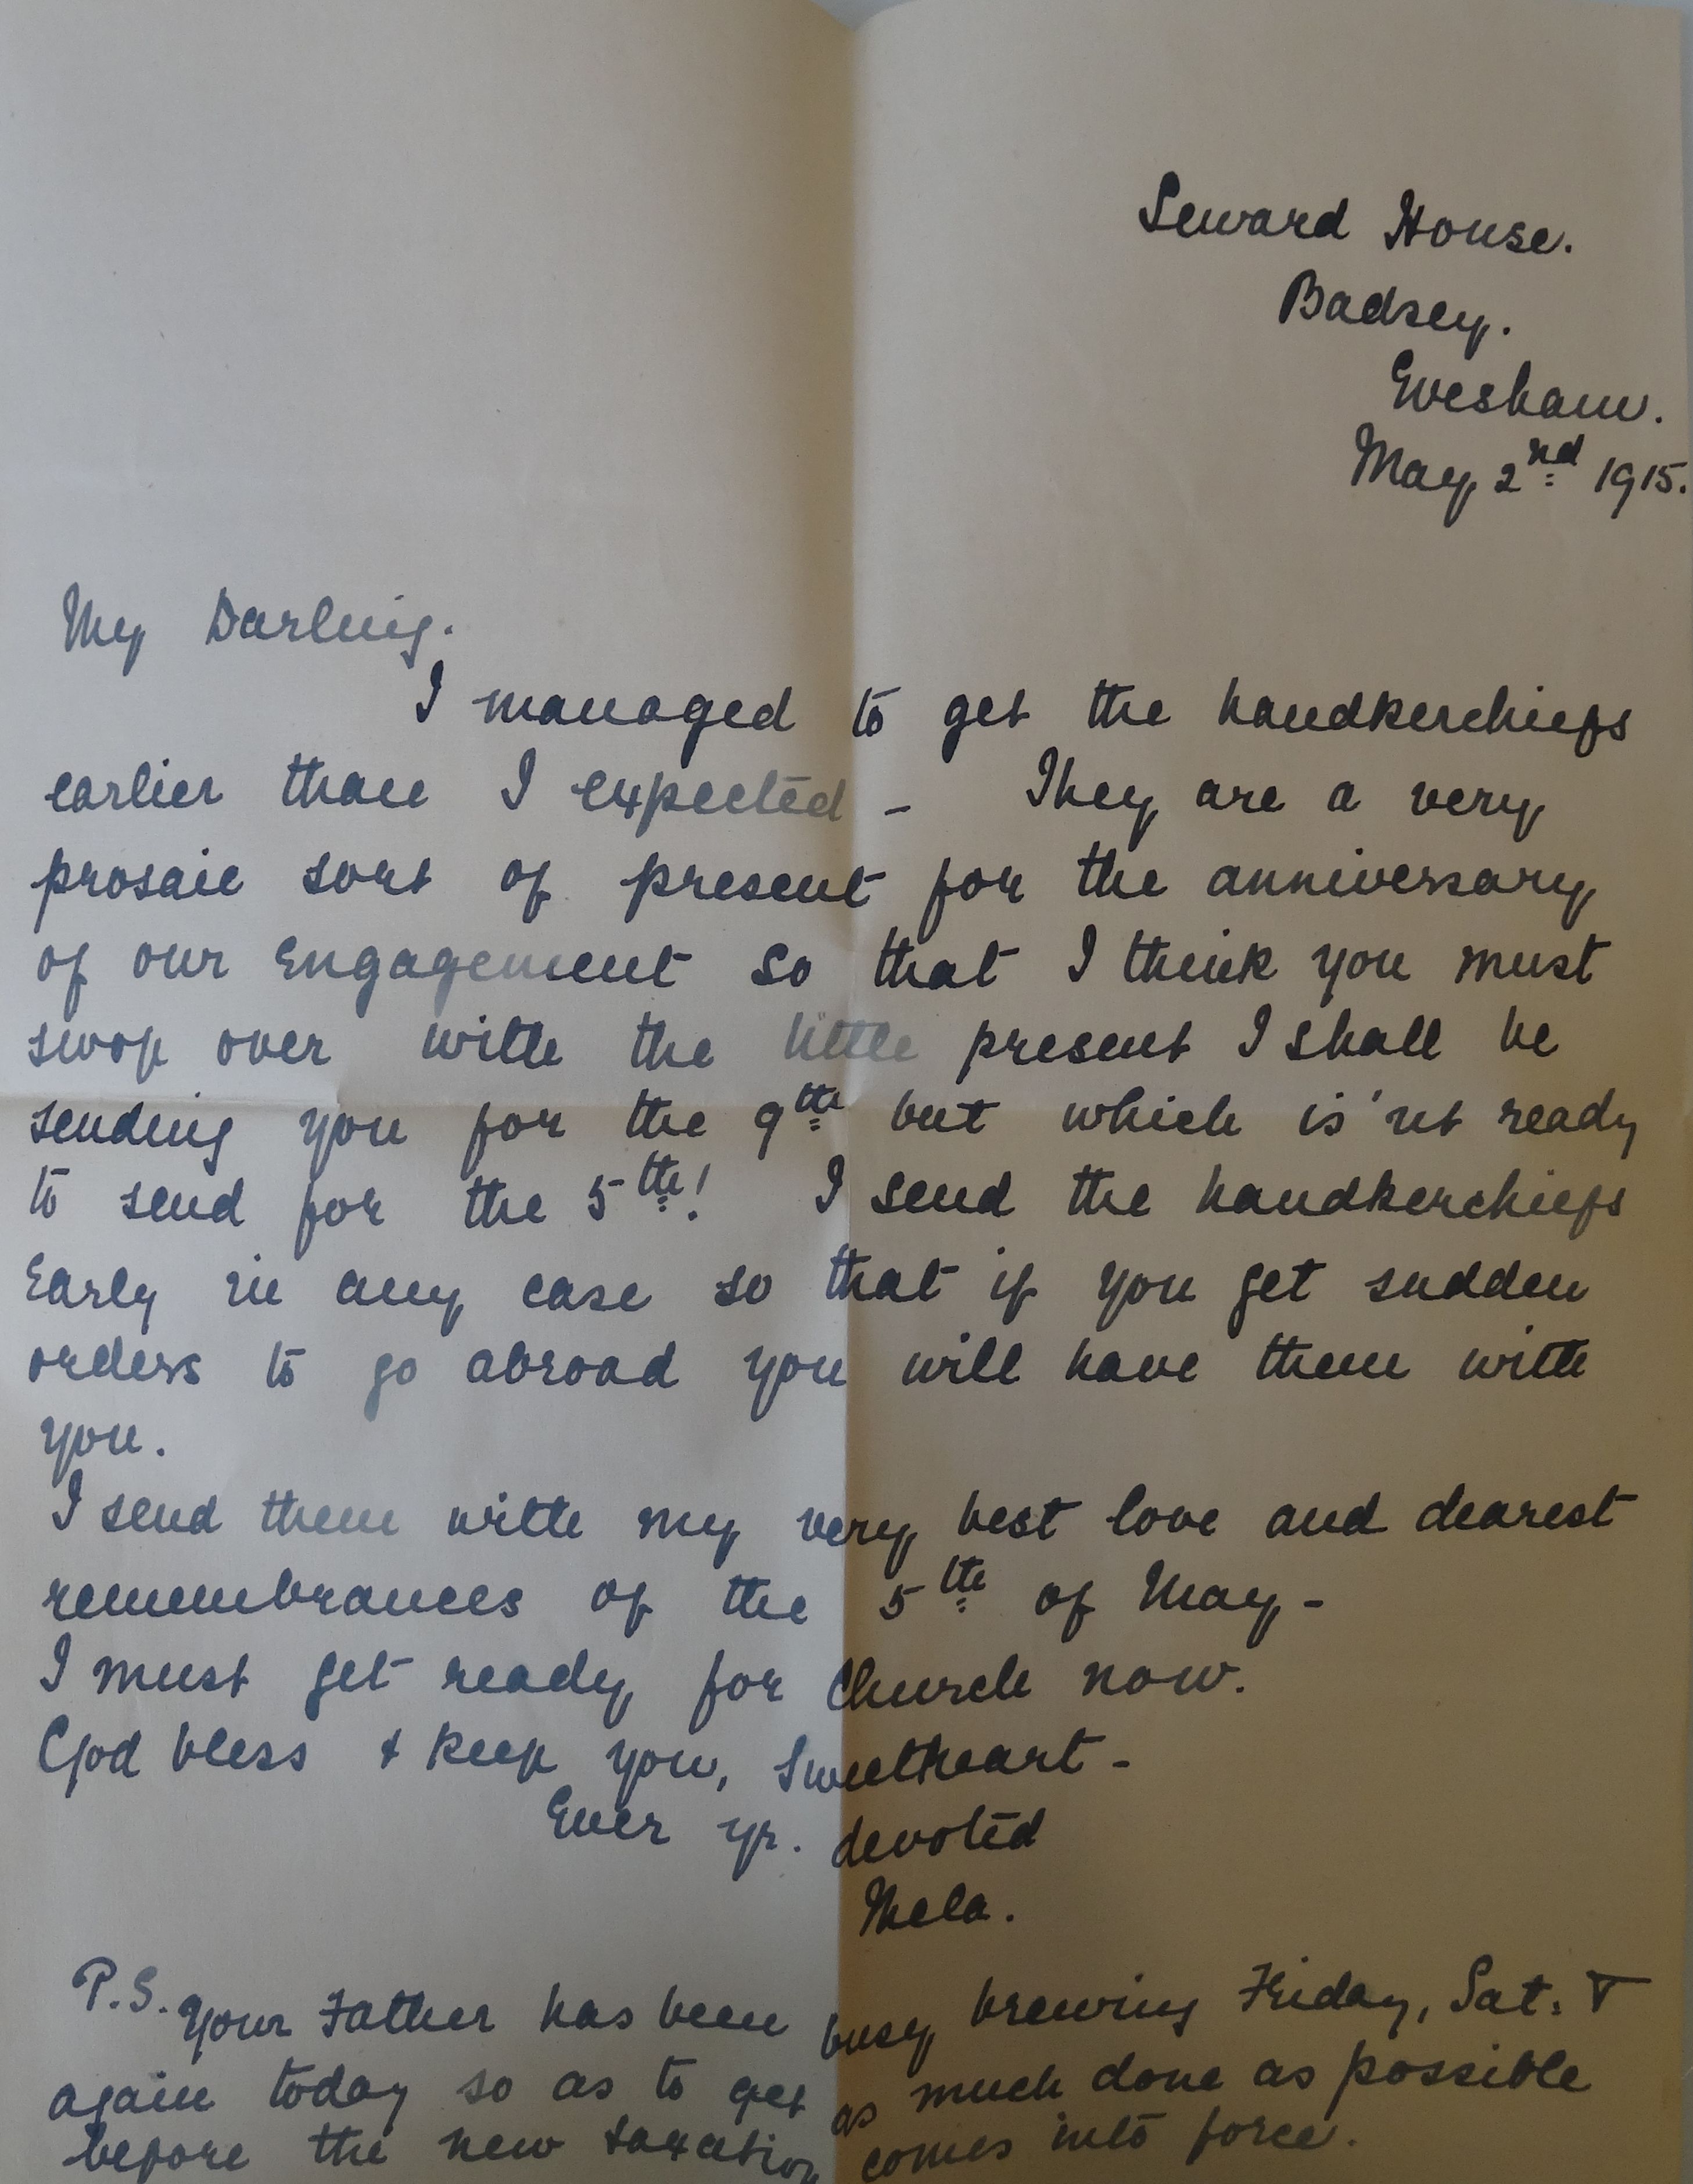 Seward House.
Badsey.
Evesham.
May 2nd 1915.
My Darling.
I managed to get the handkerchiefs
earlier than I expected - They are a very
prosaic sort of present for the anniversary
of our Engagement so that I think you must
swop over with the little present I shall be
sending you for the 9th but which is'nt ready
to send for the 5th! I send the handkerchiefs
Early in any case so that if you get sudden
orders to go abroad you will have them with
you.
I send them with my very best love and dearest
remembrances of the 5th of May -
I must get ready for Church now.
God bless & keep you, Sweetheart -
Ever yr. devoted
Mela.
P.S. Your Father has been busy brewing Friday, Sat. &
again today so as to get as much done as possible
before the new taxation comes into force.